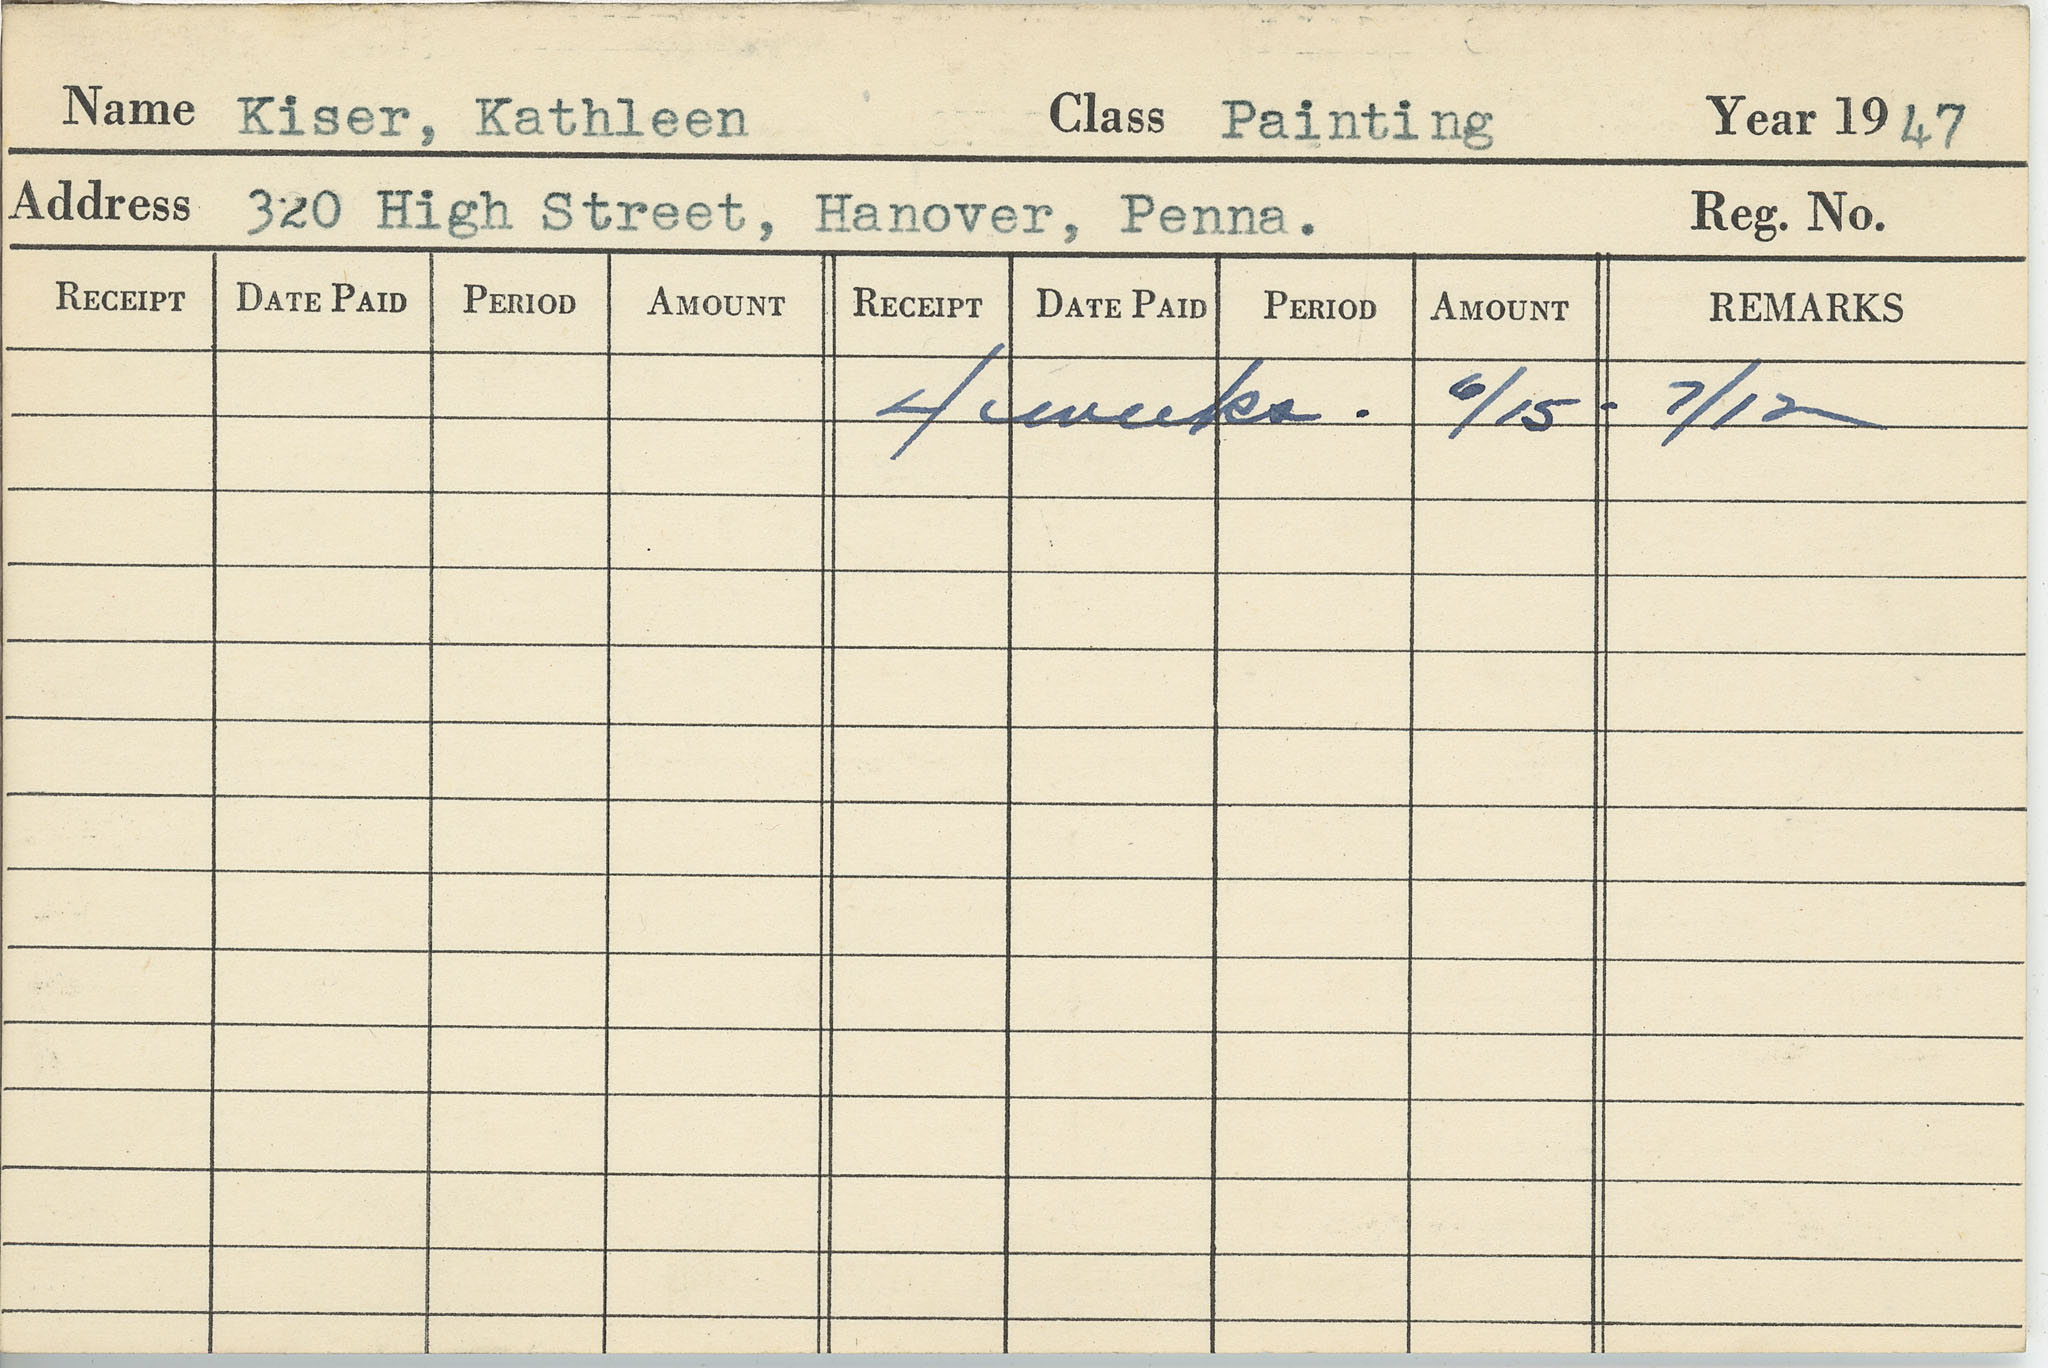 Name Kiser, Kathleen Class Painting Year 1947
Address 320 High Street, Hanover, Penna. Reg. No.
RECEIPT DATE PAID PERIOD AMOUNT RECEIPT DATE PAID PERIOD AMOUNT REMARKS
4 weeks. 6/15 - 7/12